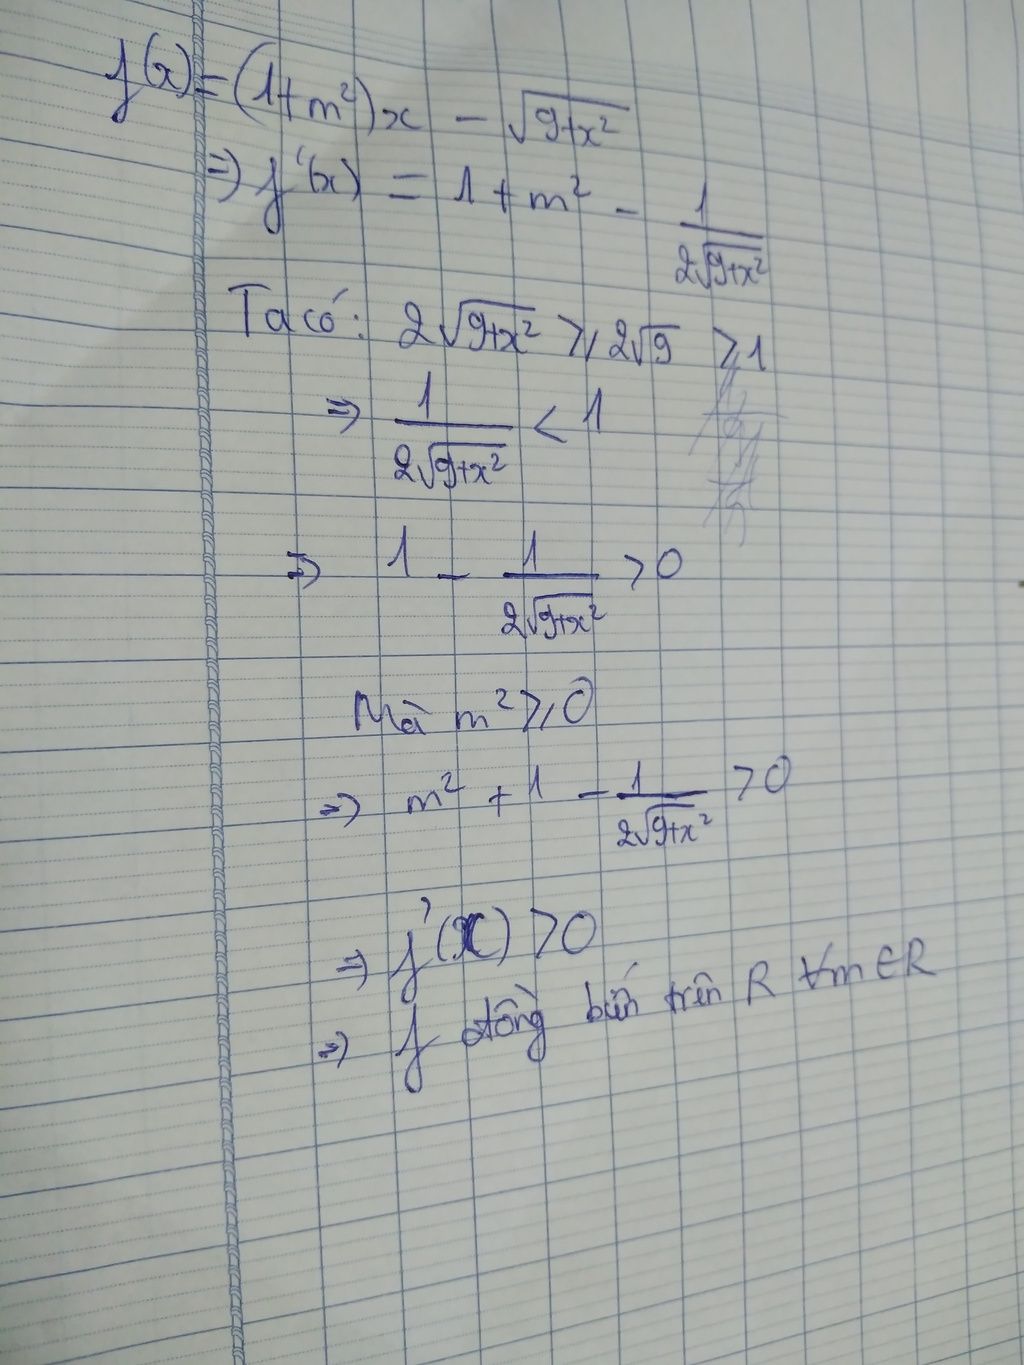 f(x) = (1+m²)x - √(9+x²)
⇒ f'(x) = 1 + m² - 1/(2√(9+x²))
Ta có: 2√(9+x²) ≥ 2√9 ≥ 1
⇒ 1/(2√(9+x²)) < 1
⇒ 1 - 1/(2√(9+x²)) > 0
Mà m² ≥ 0
⇒ m² + 1 - 1/(2√(9+x²)) > 0
⇒ f'(x) > 0
⇒ f đồng biến trên R ∀m∈R